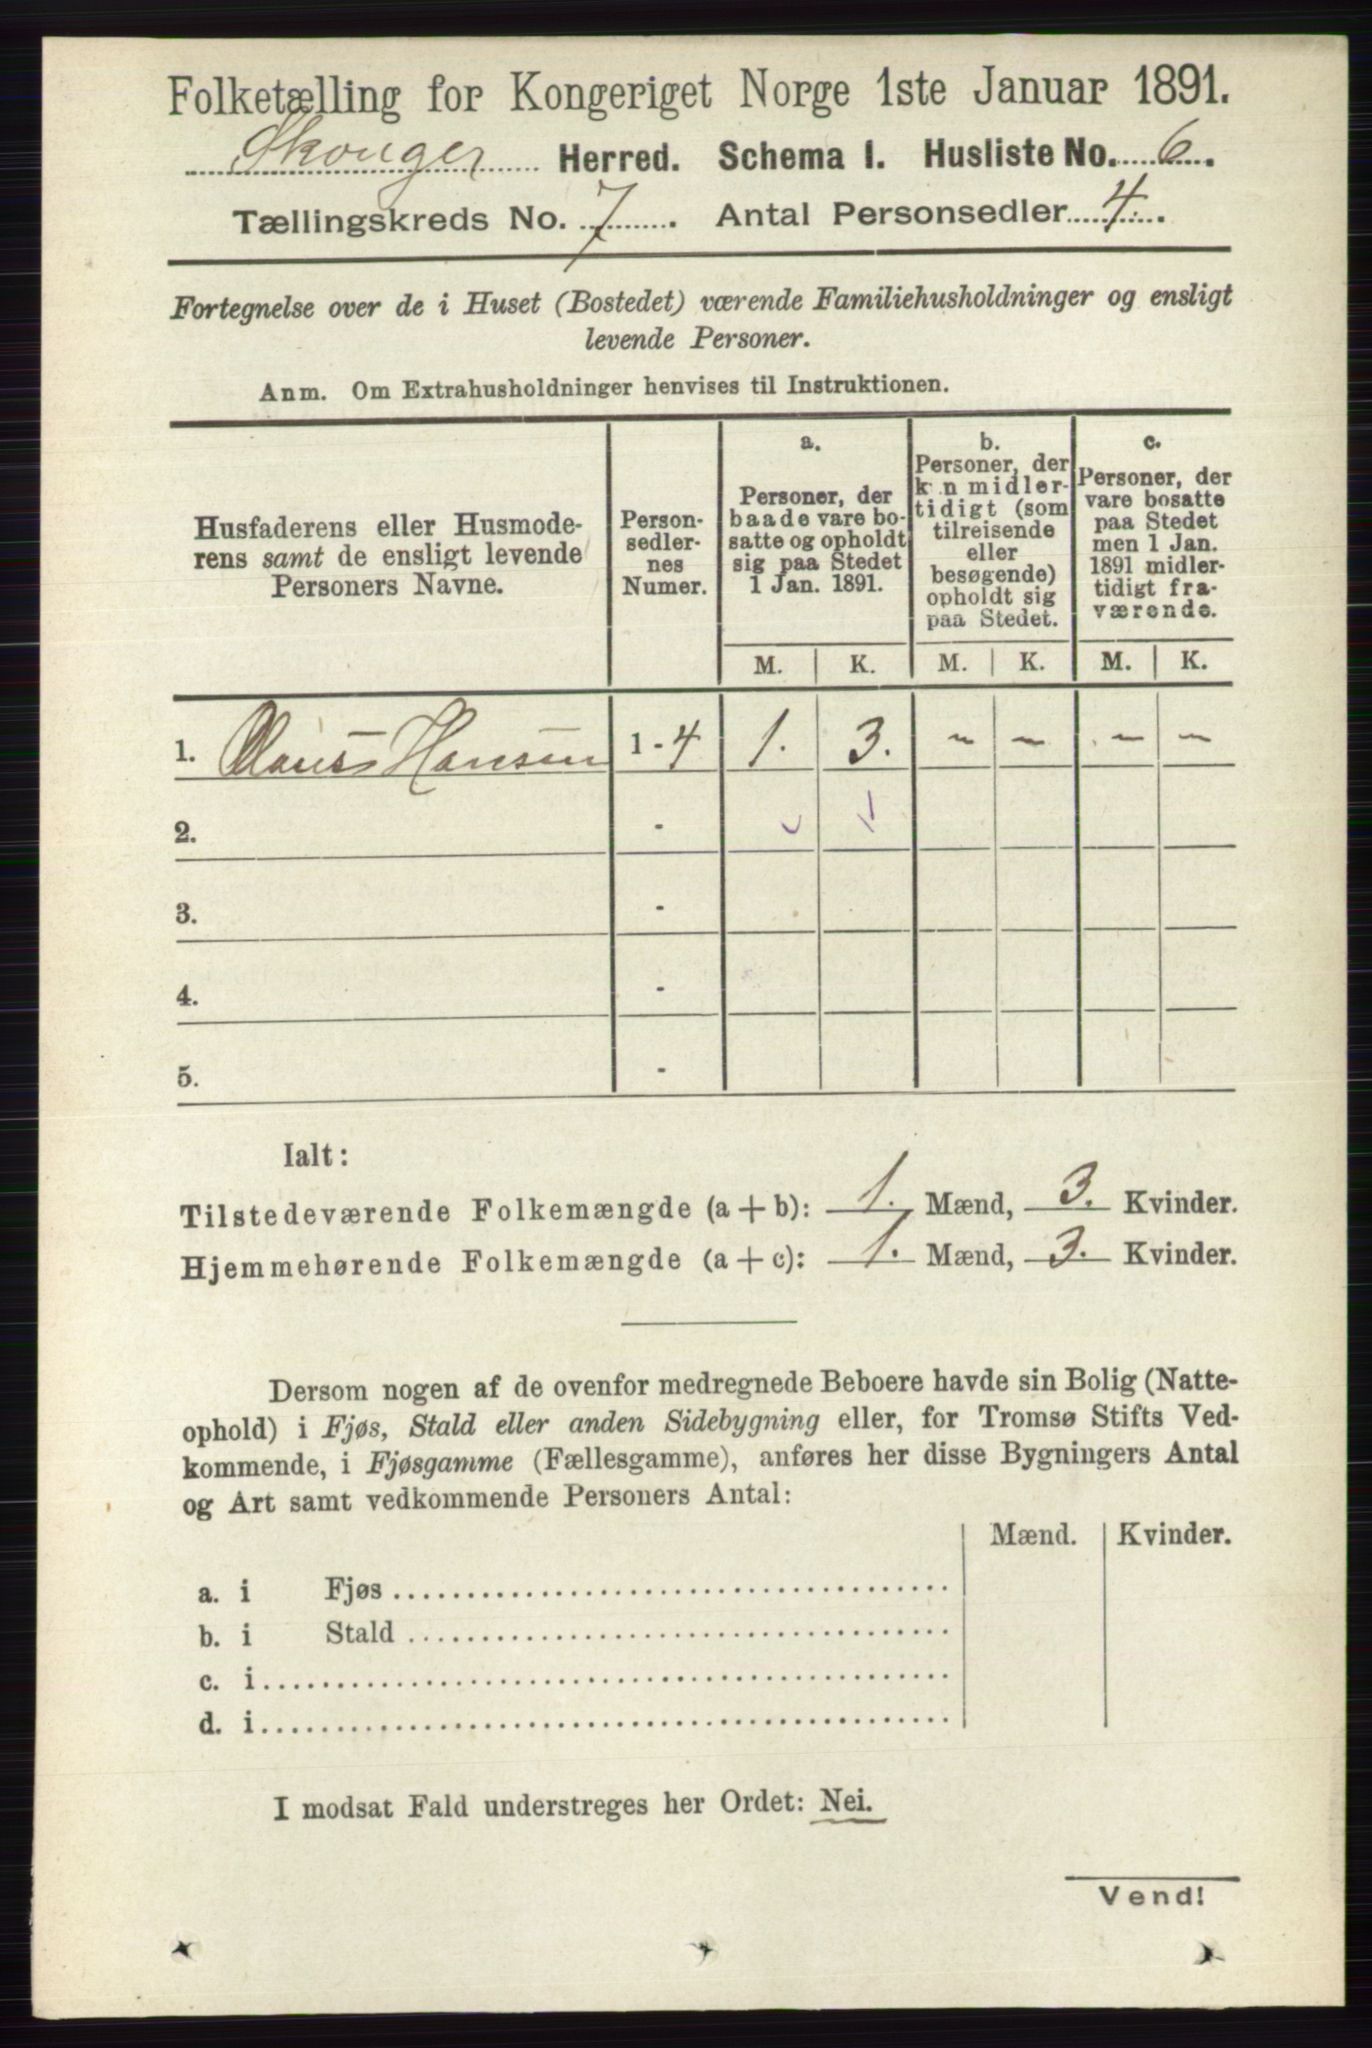 Folketælling for Kongeriget Norge 1ste Januar 1891.
Skouger Herred. Schema I. Husliste No. 6.
Tællingskreds No. 7. Antal Personsedler 4.
Fortegnelse over de i Huset (Bostedet) værende Familiehusholdninger og ensligt
levende Personer.
Anm. Om Extrahusholdninger henvises til Instruktionen.
Husfaderens eller Husmode-
rens samt de ensligt levende
Personers Navne.
Person-
sedler-
nes
Numer.
a.
Personer, der
baade vare bo-
satte og opholdt
sig paa Stedet
1 Jan. 1891.
b.
Personer, der
kun midler-
tidigt (som
tilreisende
eller
besøgende)
opholdt sig
paa Stedet.
c.
Personer, der
vare bosatte
paa Stedet
men 1 Jan.
1891 midler-
tidigt fra-
værende.
M. K. M. K. M. K.
1. Claus Hansen 1 - 4 1. 3. - - - -
2. -
3. -
4. -
5. -
Ialt:
Tilstedeværende Folkemængde (a + b): 1. Mænd, 3. Kvinder.
Hjemmehørende Folkemængde (a + c): 1. Mænd, 3. Kvinder.
Dersom nogen af de ovenfor medregnede Beboere havde sin Bolig (Natte-
ophold) i Fjøs, Stald eller anden Sidebygning eller, for Tromsø Stifts Ved-
kommende, i Fjøsgamme (Fællesgamme), anføres her disse Bygningers Antal
og Art samt vedkommende Personers Antal:
Mænd. Kvinder.
a. i Fjøs
b. i Stald
c. i
d. i
I modsat Fald understreges her Ordet: Nei.
Vend!